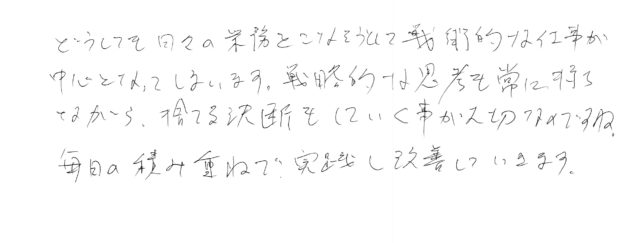 どうしても日々の業務をこなそうとして戦術的な仕事が
中心となってしまいます。戦略的な思考も常に持ち
ながら、捨てる決断もしていく事が大切なのですね。
毎日の積み重ねで実践し改善していきます。